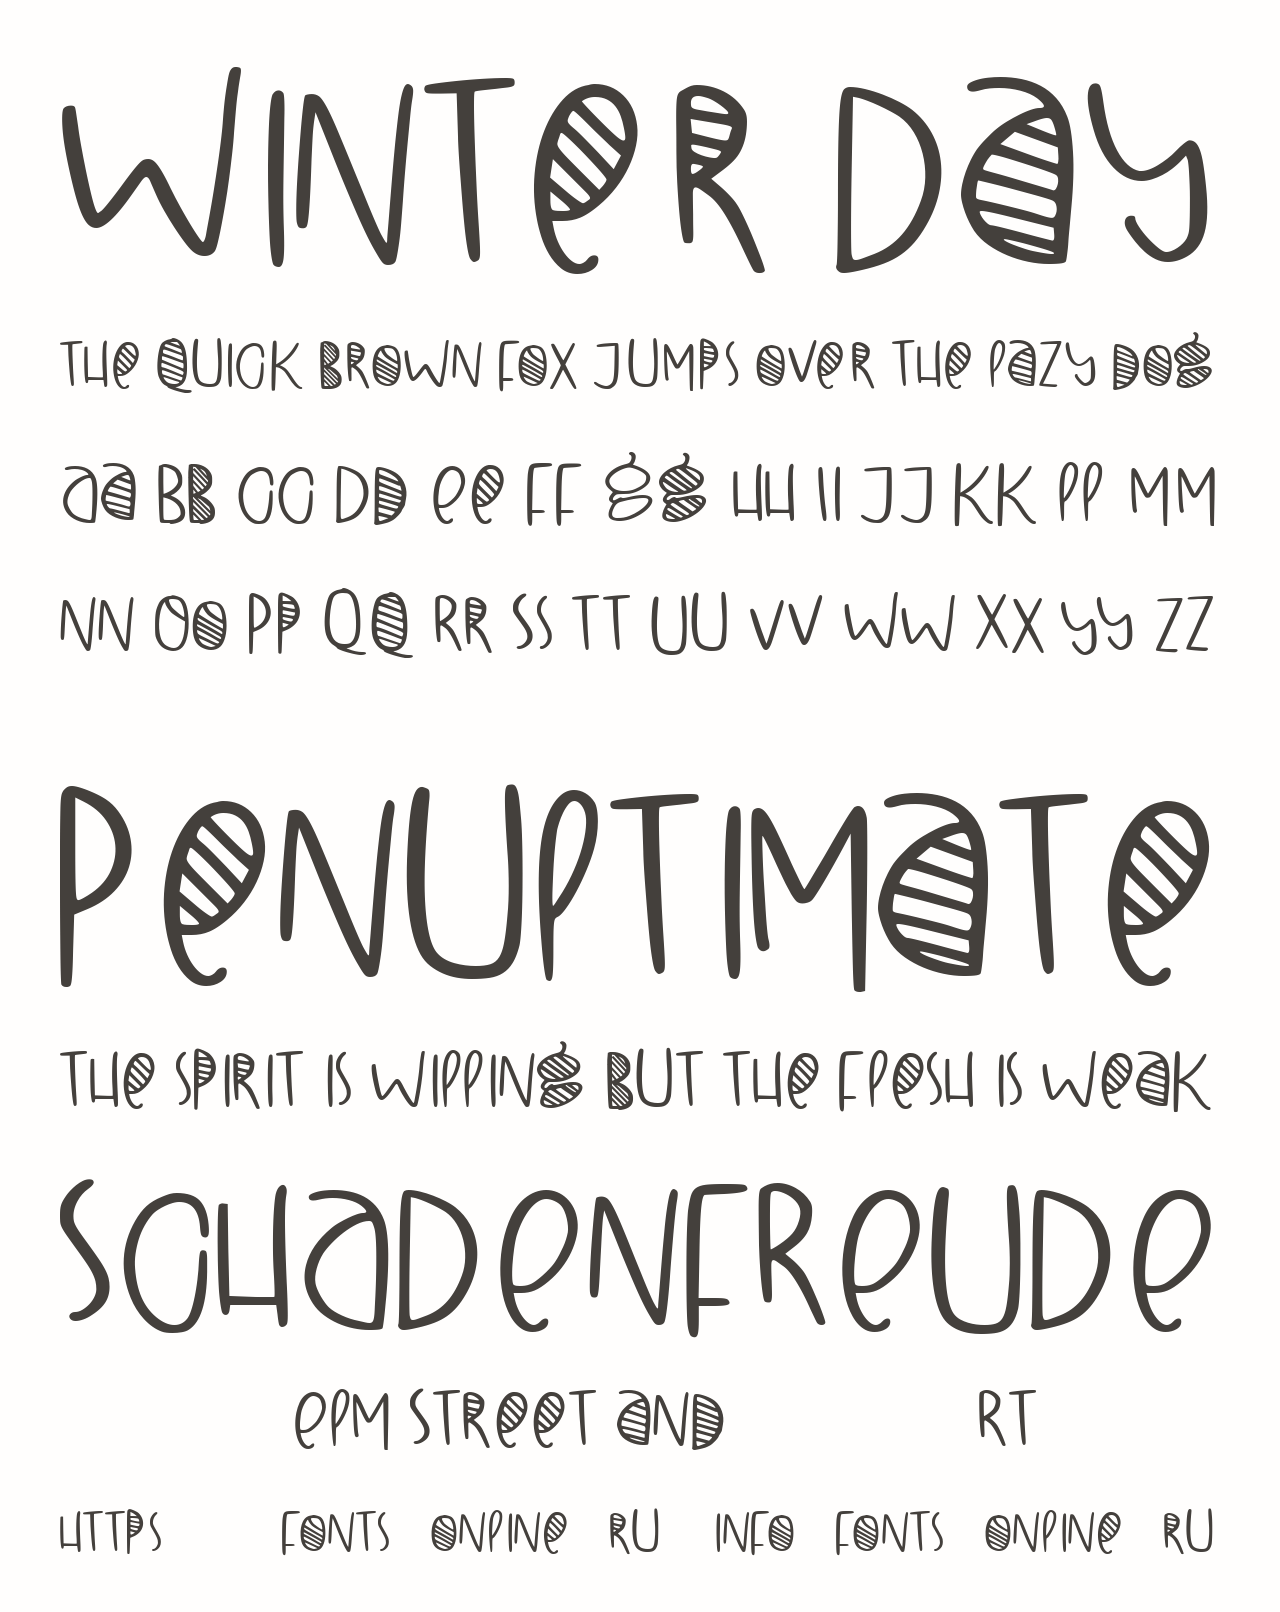 WINTeR Day
THe QUICK BROWN FOX JUMPS OVeR THe laZy DOg
aa BB CC DD ee FF gg HH II JJ KK ll MM
NN OO PP QQ RR SS TT UU VV WW XX yy ZZ
PeNUlTIMaTe
THe SPIRIT IS WIllINg BUT THe FleSH IS WeaK
SCHaDeNFReUDe
elM STReeT aND RT
HTTPS FONTS ONlINe RU INFO FONTS ONlINe RU